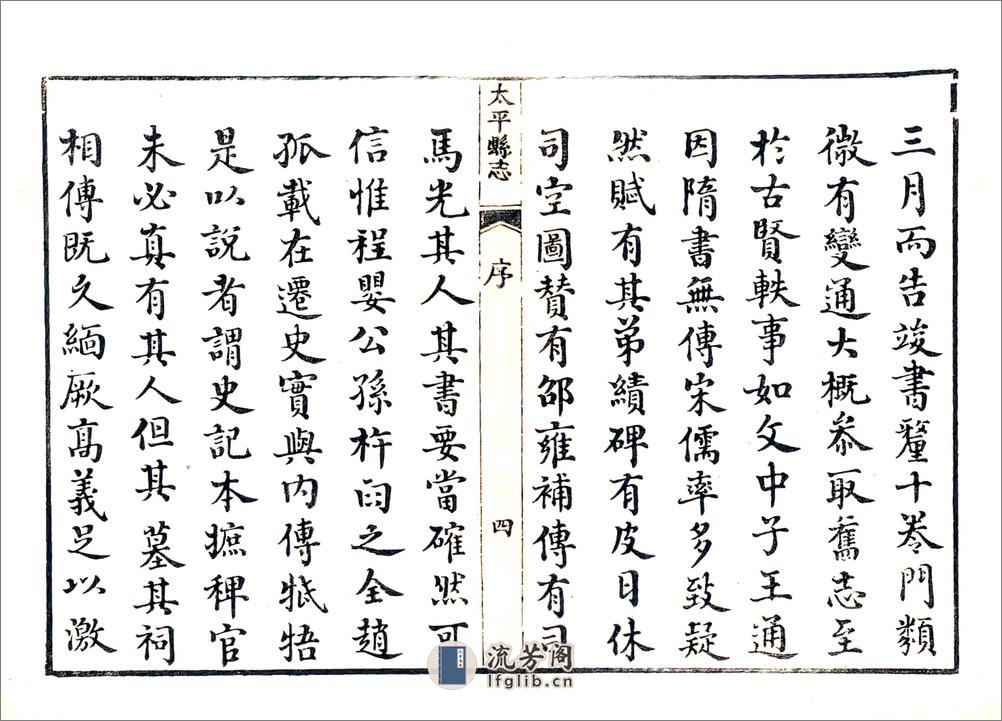 三月而告竣書釐十卷門類
微有變通大概叅取舊志至
於古賢軼事如文中子王通
因隋書無傳宋儒率多致疑
然賦有其弟績碑有皮日休
司空圖贊有邵雍補傳有司
太平縣志
序
四
馬光其人其書要當確然可
信惟程嬰公孫杵臼之全趙
孤載在遷史實與內傳牴牾
是以說者謂史記本摭稗官
未必真有其人但其墓其祠
相傳既久緬厥高義足以激
流芳阁
lfglib.cn